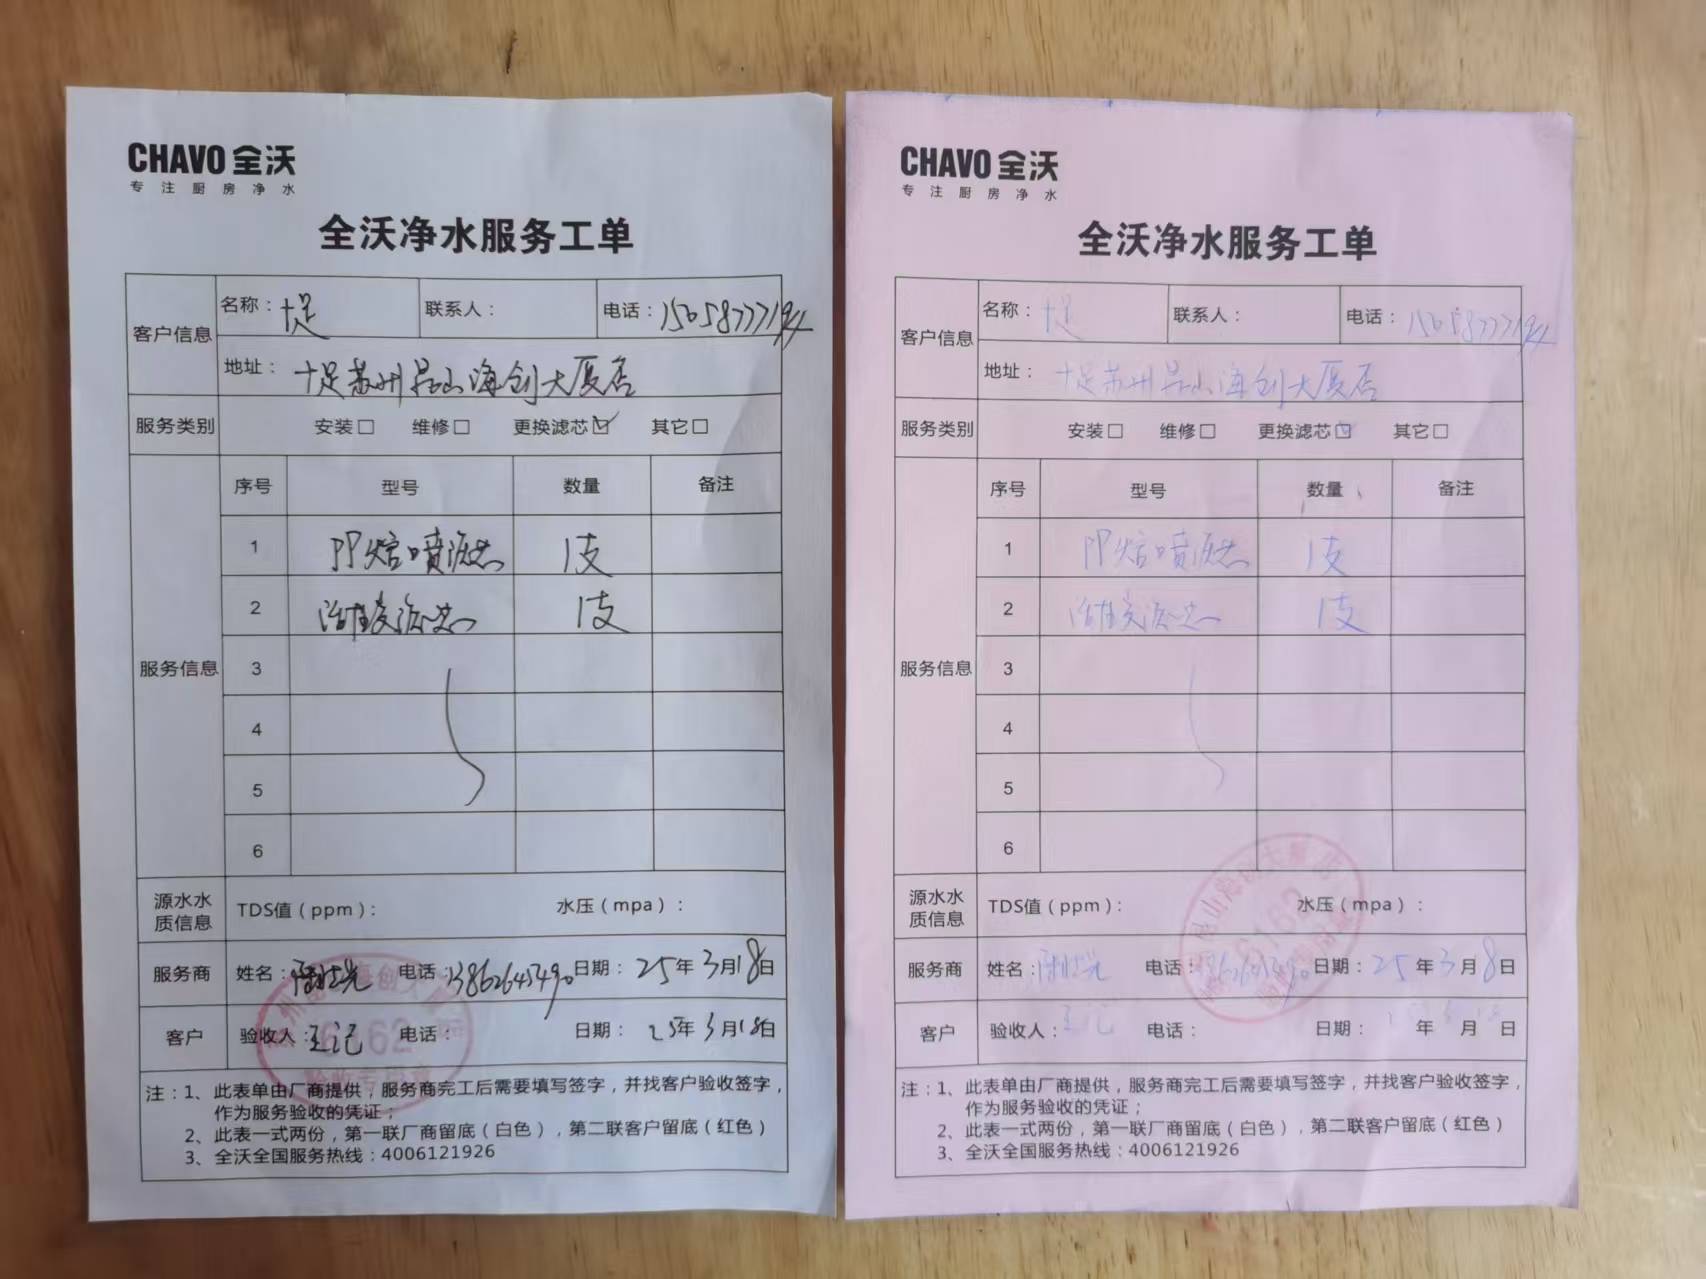 CHAVO 全沃
专注厨房净水
全沃净水服务工单
客户信息
名称：十足
联系人：
电话：
地址：十足苏州昆山海创大厦店
服务类别
安装□ 维修□ 更换滤芯☑ 其它□
服务信息
序号 型号 数量 备注
1 PP熔喷滤芯 1支
2 活性炭滤芯 1支
3
4
5
6
源水水质信息
TDS值（ppm）： 水压（mpa）：
服务商
姓名： 电话：13862645490 日期：25年3月18日
客户
验收人： 电话： 日期：25年3月18日
注：1、此表单由厂商提供，服务商完工后需要填写签字，并找客户验收签字，
作为服务验收的凭证；
2、此表一式两份，第一联厂商留底（白色），第二联客户留底（红色）
3、全沃全国服务热线：4006121926
6162
验收专用章
CHAVO 全沃
专注厨房净水
全沃净水服务工单
客户信息
名称：十足
联系人：
电话：
地址：十足苏州昆山海创大厦店
服务类别
安装□ 维修□ 更换滤芯☑ 其它□
服务信息
序号 型号 数量 备注
1 PP熔喷滤芯 1支
2 活性炭滤芯 1支
3
4
5
6
源水水质信息
TDS值（ppm）： 水压（mpa）：
服务商
姓名： 电话： 日期：25年3月18日
客户
验收人： 电话： 日期： 年 月 日
注：1、此表单由厂商提供，服务商完工后需要填写签字，并找客户验收签字，
作为服务验收的凭证；
2、此表一式两份，第一联厂商留底（白色），第二联客户留底（红色）
3、全沃全国服务热线：4006121926
昆山海创大厦店
6162